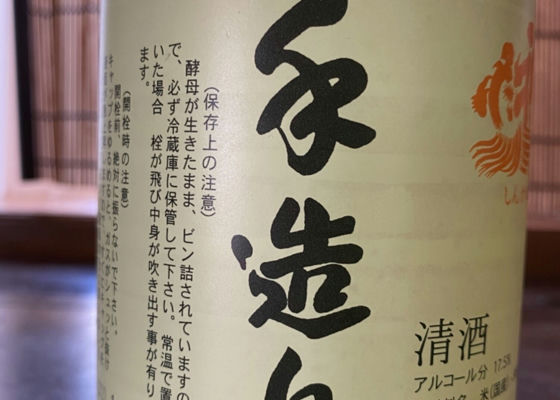 手造り
(保存上の注意)
酵母が生きたまま、ビン詰されていますの
で、必ず冷蔵庫に保管して下さい。常温で置
いた場合 栓が飛び中身が吹き出す事が有り
ます。
(開栓時の注意)
開栓前、絶対に振らないで下さい。
キャップをゆるめると、ガスがシュッと抜け
清酒
アルコール分 17.5%
米(国産)